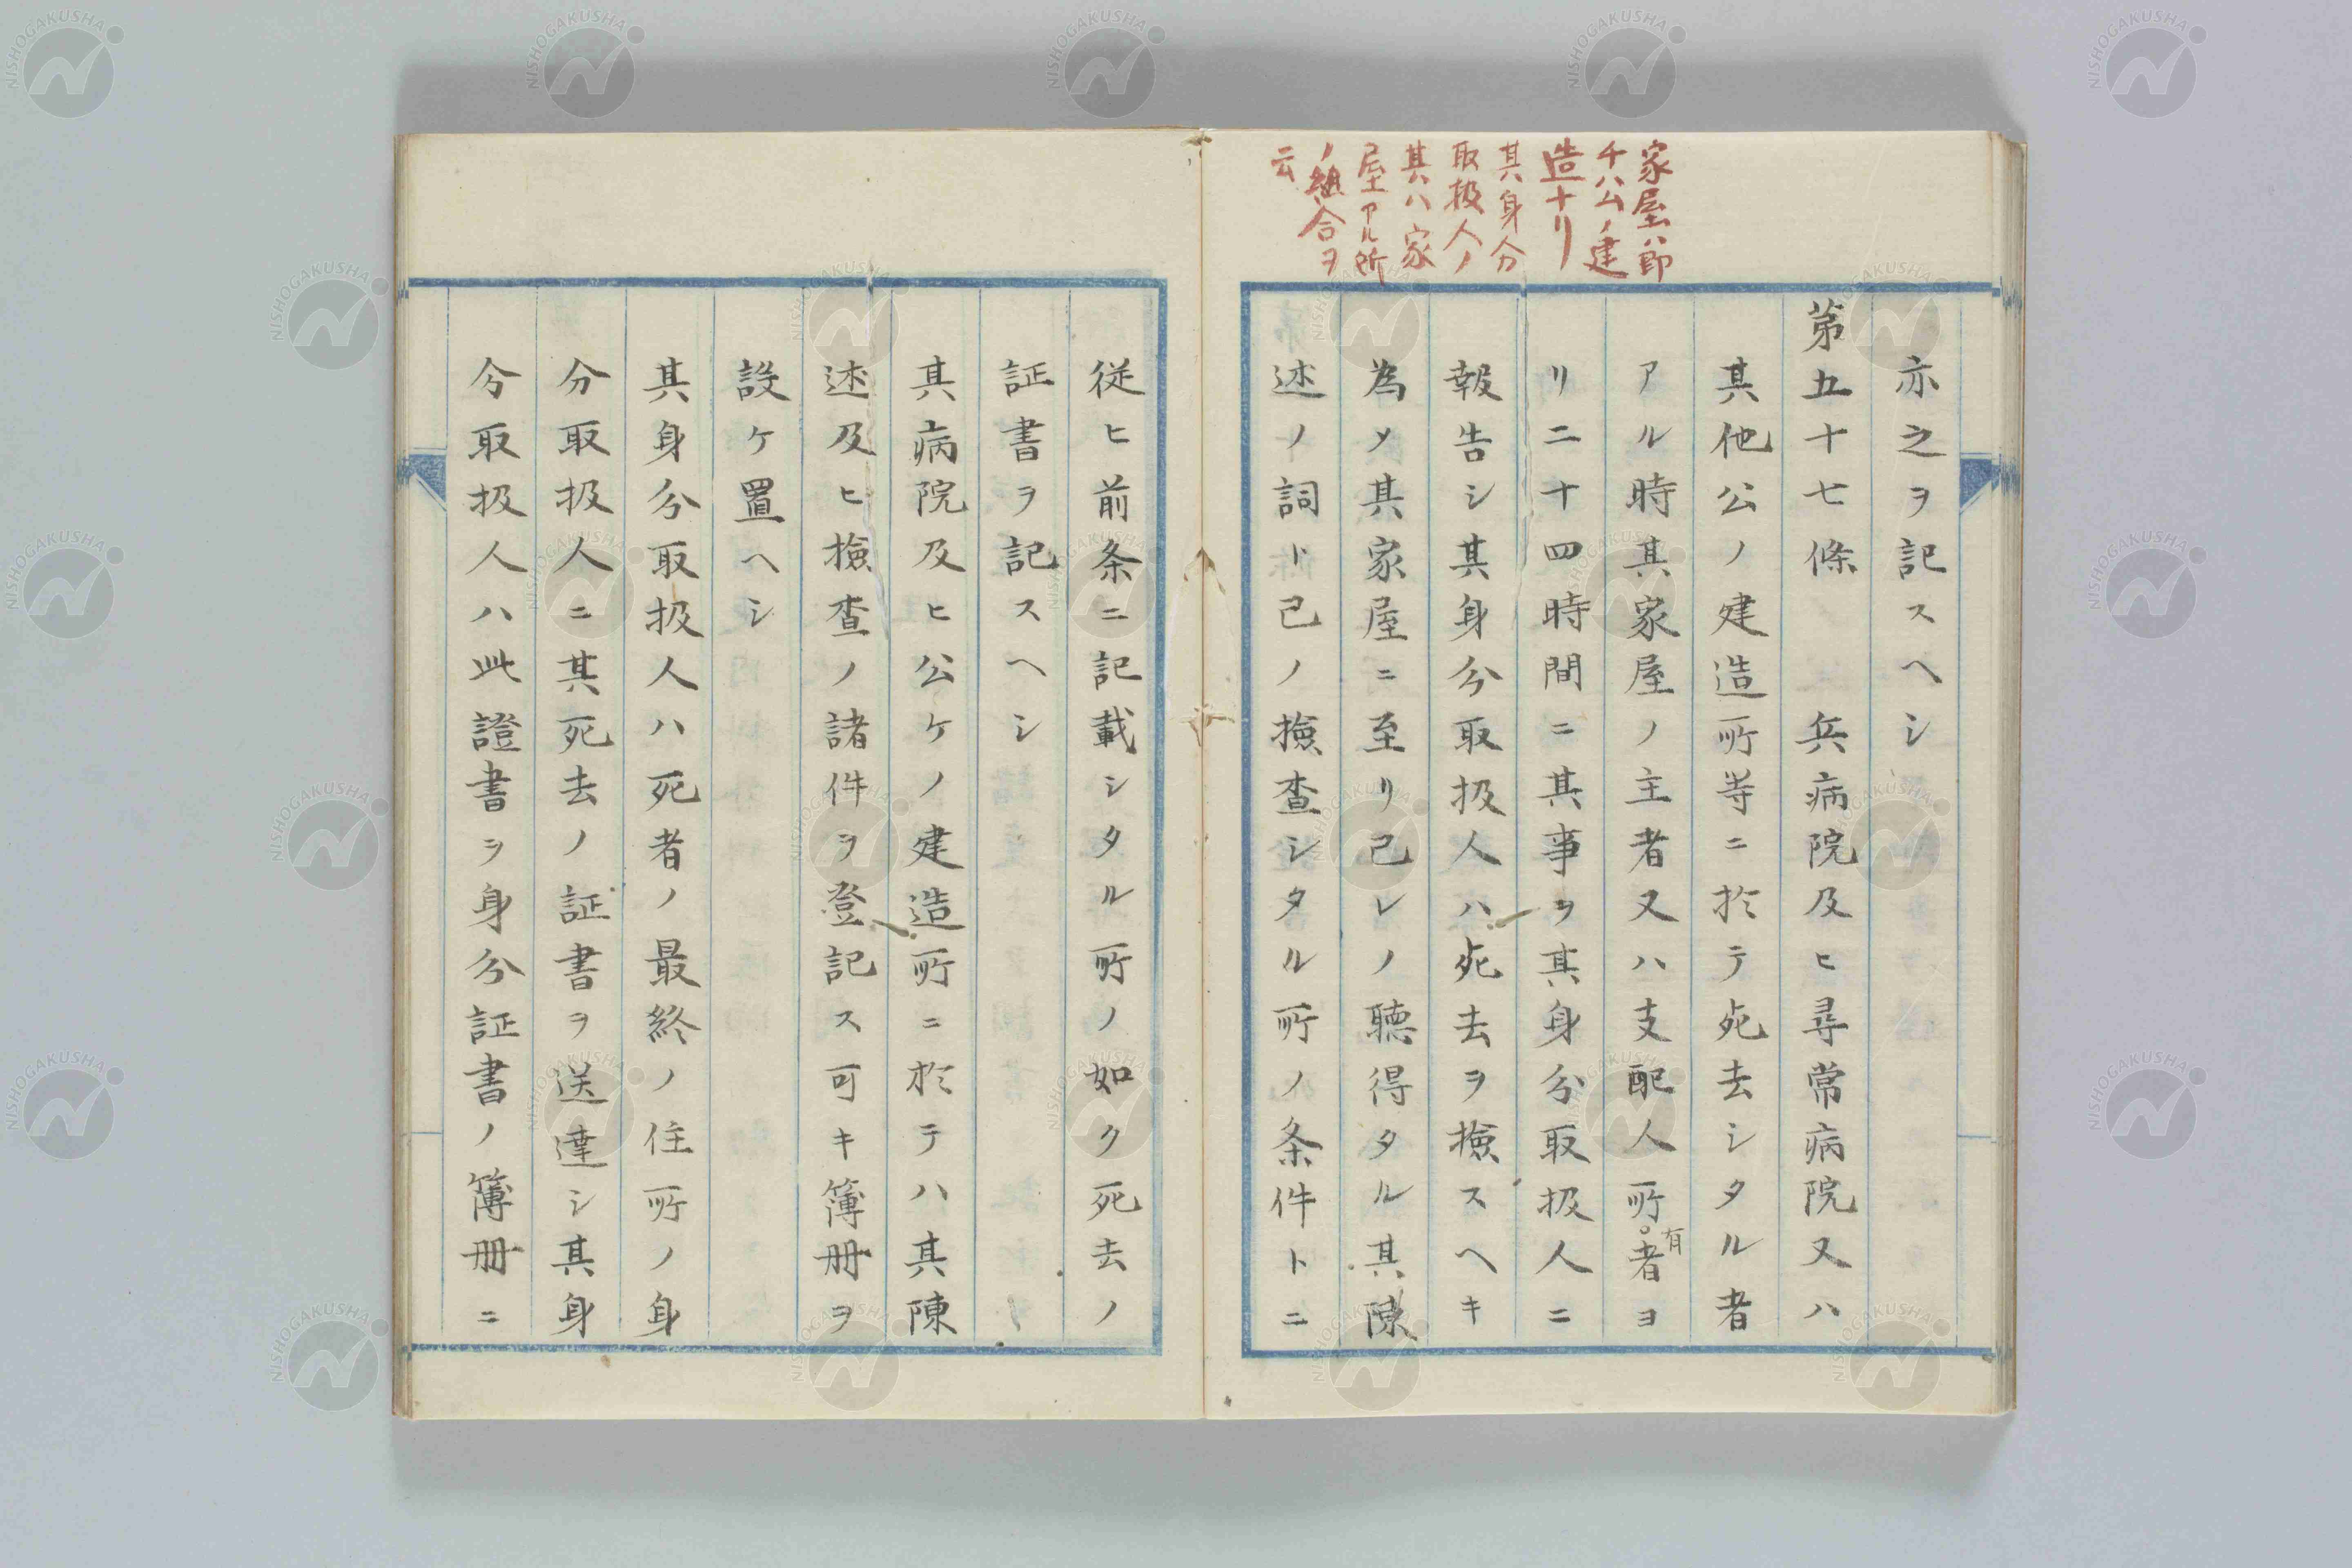 家屋ハ節
チハ公ノ建
造ナリ
其身分
取扱人ノ
其ハ家
屋アル所
ノ組合ヲ
云
亦之ヲ記スヘシ
第五十七條 兵病院及ヒ尋常病院又ハ
其他公ノ建造所等ニ於テ死去シタル者
アル時其家屋ノ主者又ハ支配人所有者ヨ
リ二十四時間ニ其事ヲ其身分取扱人ニ
報告シ其身分取扱人ハ死去ヲ撿スヘキ
為メ其家屋ニ至リ己レノ聴得タル其陳
述ノ詞ト己ノ撿査シタル所ノ条件トニ
従ヒ前条ニ記載シタル所ノ如ク死去ノ
証書ヲ記スヘシ
其病院及ヒ公ケノ建造所ニ於テハ其陳
述及ヒ撿查ノ諸件ヲ登記ス可キ簿冊ヲ
設ケ置ヘシ
其身分取扱人ハ死者ノ最終ノ住所ノ身
分取扱人ニ其死去ノ証書ヲ送達シ其身
分取扱人ハ此證書ヲ身分証書ノ簿冊ニ
NISHOGAKUSHA